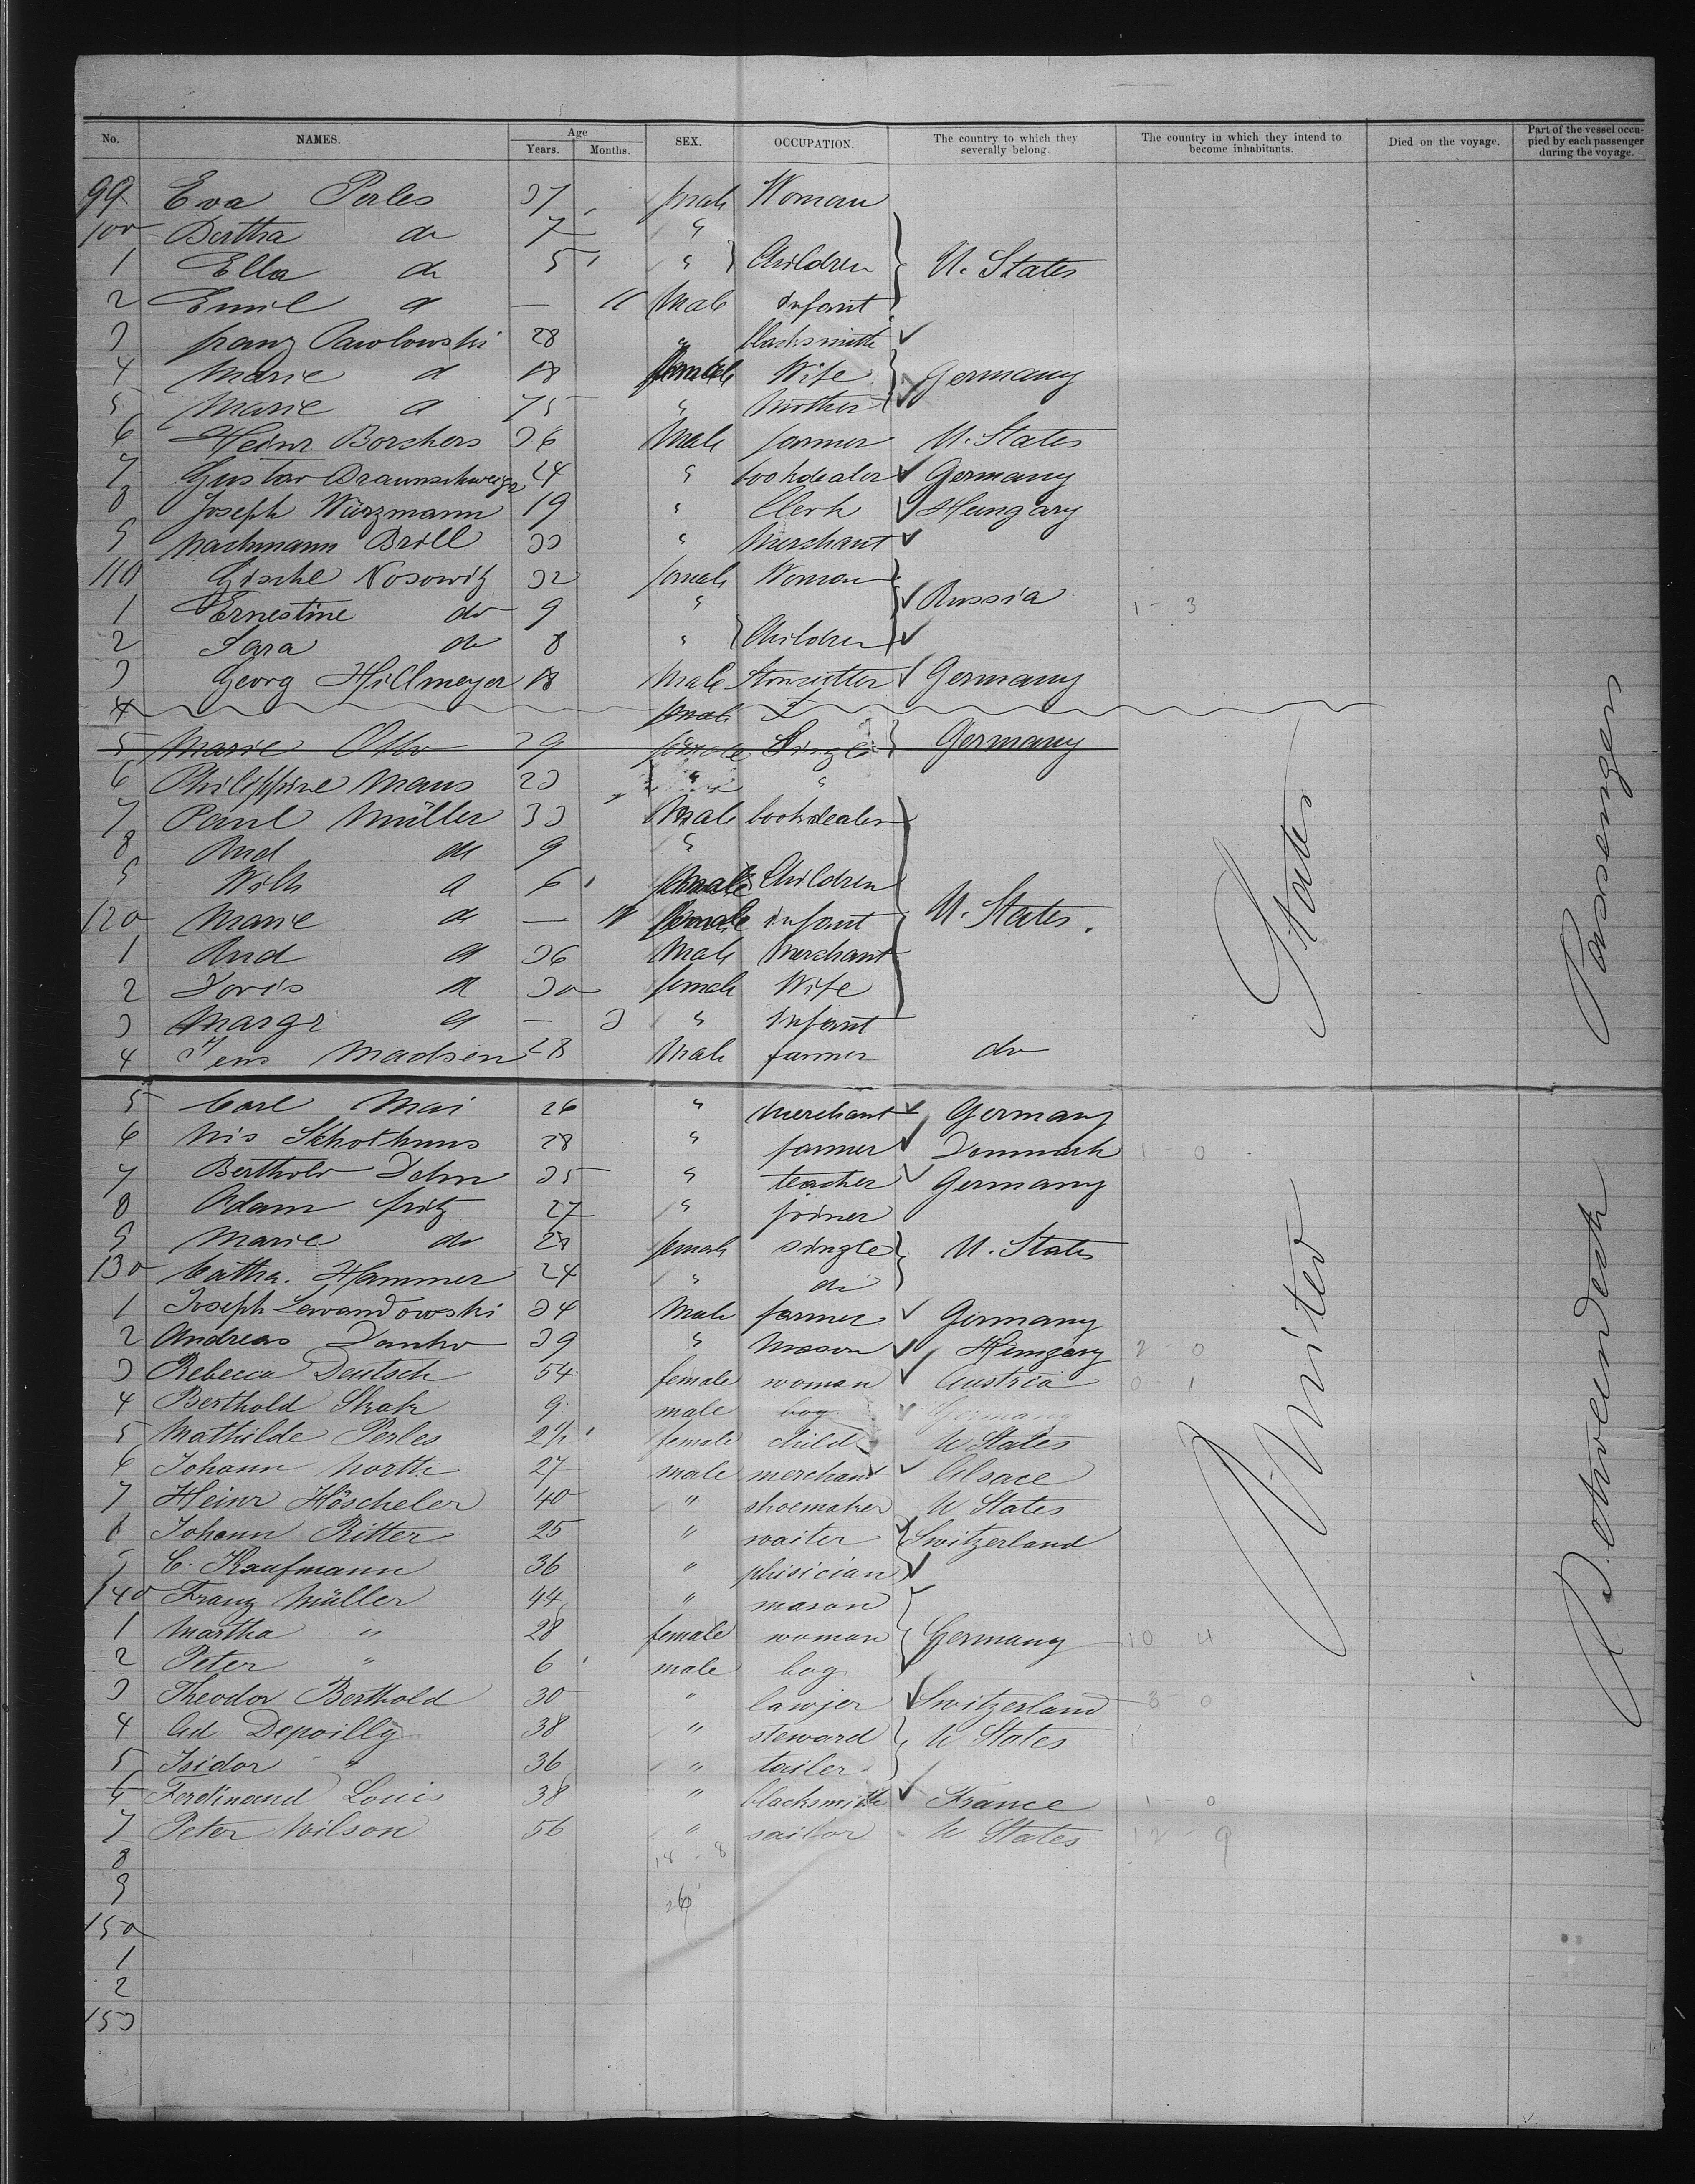 No. NAMES. Age Years. Months. SEX. OCCUPATION. The country to which they severally belong. The country in which they intend to become inhabitants. Died on the voyage. Part of the vessel occupied by each passenger during the voyage.
99 Eva Perles 37 female Woman
100 Bertha do 7 "
1 Ella do 5 " } Children } U. States
2 Emil do — 11 Male Infant
3 franz Pawlowski 28 " blacksmith
4 Marie do 18 female Wife } Germany
5 Marie do 75 " Mother
6 Heinr Borchers 36 Male farmer U. States
7 Gustav Braunschweiger 24 " bookdealer Germany
8 Joseph Würzmann 19 " Clerk Hungary
9 Nachmann Brill 33 " Merchant
110 Gischl Nosowitz 32 female Woman
1 Ernestine do 9 " Russia 1 - 3
2 Sara do 8 " } Children }
3 Georg Hillmeyer 18 Male Stonecutter Germany
4 female
5 Marie Otto 29 female Single } Germany
6 Philippine Maus 23 " "
7 Paul Müller 33 Male bookdealer
8 Rud do 9 "
9 Wilh do 6 Male Children
120 Marie do — female Infant U. States.
1 Rud do 36 Male Merchant
2 Doris do 30 female Wife
3 Margr do — 3 " Infant
4 Jens Madsen 28 Male farmer do
5 Carl Mai 26 " Merchant Germany
6 Nis Skhothuus 28 " farmer Denmark 1 - 0
7 Berthold Dehn 35 " teacher Germany
8 Adam fritz 27 " joiner
9 Marie do 28 female single } U. States
130 Catha. Hammer 24 " do
1 Joseph Lewandowski 34 Male farmer Germany
2 Andreas Danko 39 " Mason Hungary 2 - 0
3 Rebecca Deutsch 54 female woman Austria 0 - 1
4 Berthold Skak 9 male boy Germany
5 Mathilde Perles 2½ female child U States
6 Johann North 27 male merchant Alsace
7 Heinr Höscheler 40 " shoemaker U States
8 Johann Ritter 25 " waiter } Switzerland
9 C. Kaufmann 36 " phisician
140 Franz Müller 44 " mason
1 Martha " 28 female woman } Germany 10 4
2 Peter " 6 male boy
3 Theodor Berthold 30 " lawjer Switzerland 3 - 0
4 Ad. Depoilly 38 " steward } U States
5 Isidor " 36 " tailer
6 Ferdinand Louis 38 " blacksmith France 1 - 0
7 Peter Wilson 56 " sailor U States 12 - 9
8 18 - 8
9
150
1
2
153
United States
Passengers